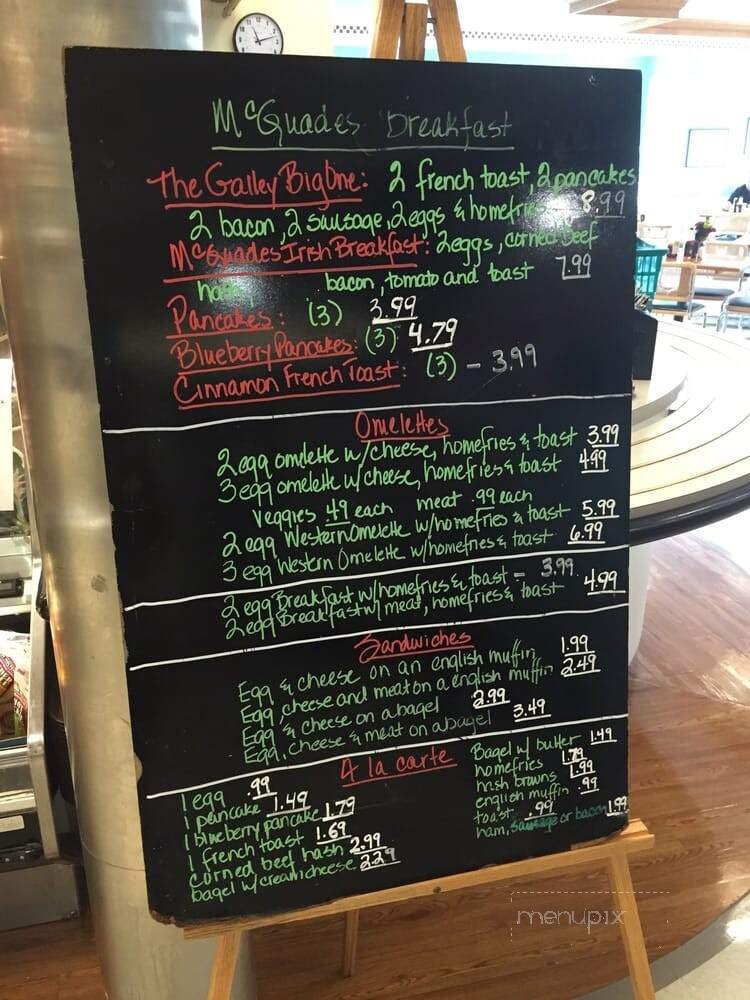 McQuades Breakfast
The Galley Big One: 2 french toast, 2 pancakes
2 bacon, 2 sausage, 2 eggs & homefries 8.99
McQuades Irish Breakfast: 2 eggs, corned beef
hash, bacon, tomato and toast 7.99
Pancakes: (3) 3.99
Blueberry Pancakes: (3) 4.79
Cinnamon French Toast: (3) - 3.99
Omelettes
2 egg omelette w/cheese, homefries & toast 3.99
3 egg omelette w/cheese, homefries & toast 4.99
Veggies .49 each meat .99 each
2 egg Western Omelette w/homefries & toast 5.99
3 egg Western Omelette w/homefries & toast 6.99
2 egg Breakfast w/homefries & toast - 3.99
2 egg Breakfast w/ meat, homefries & toast 4.99
Sandwiches
Egg & cheese on an english muffin 1.99
Egg, cheese and meat on a english muffin 2.49
Egg & cheese on a bagel 2.99
Egg, cheese & meat on a bagel 3.49
A la carte
1 egg .99
1 pancake 1.49
1 blueberry pancake 1.79
1 french toast 1.69
corned beef hash 2.99
bagel w/creamcheese 2.29
Bagel w/ butter 1.49
homefries 1.79
hash browns 1.99
english muffin .99
toast .99
ham, sausage or bacon 1.99
menupix